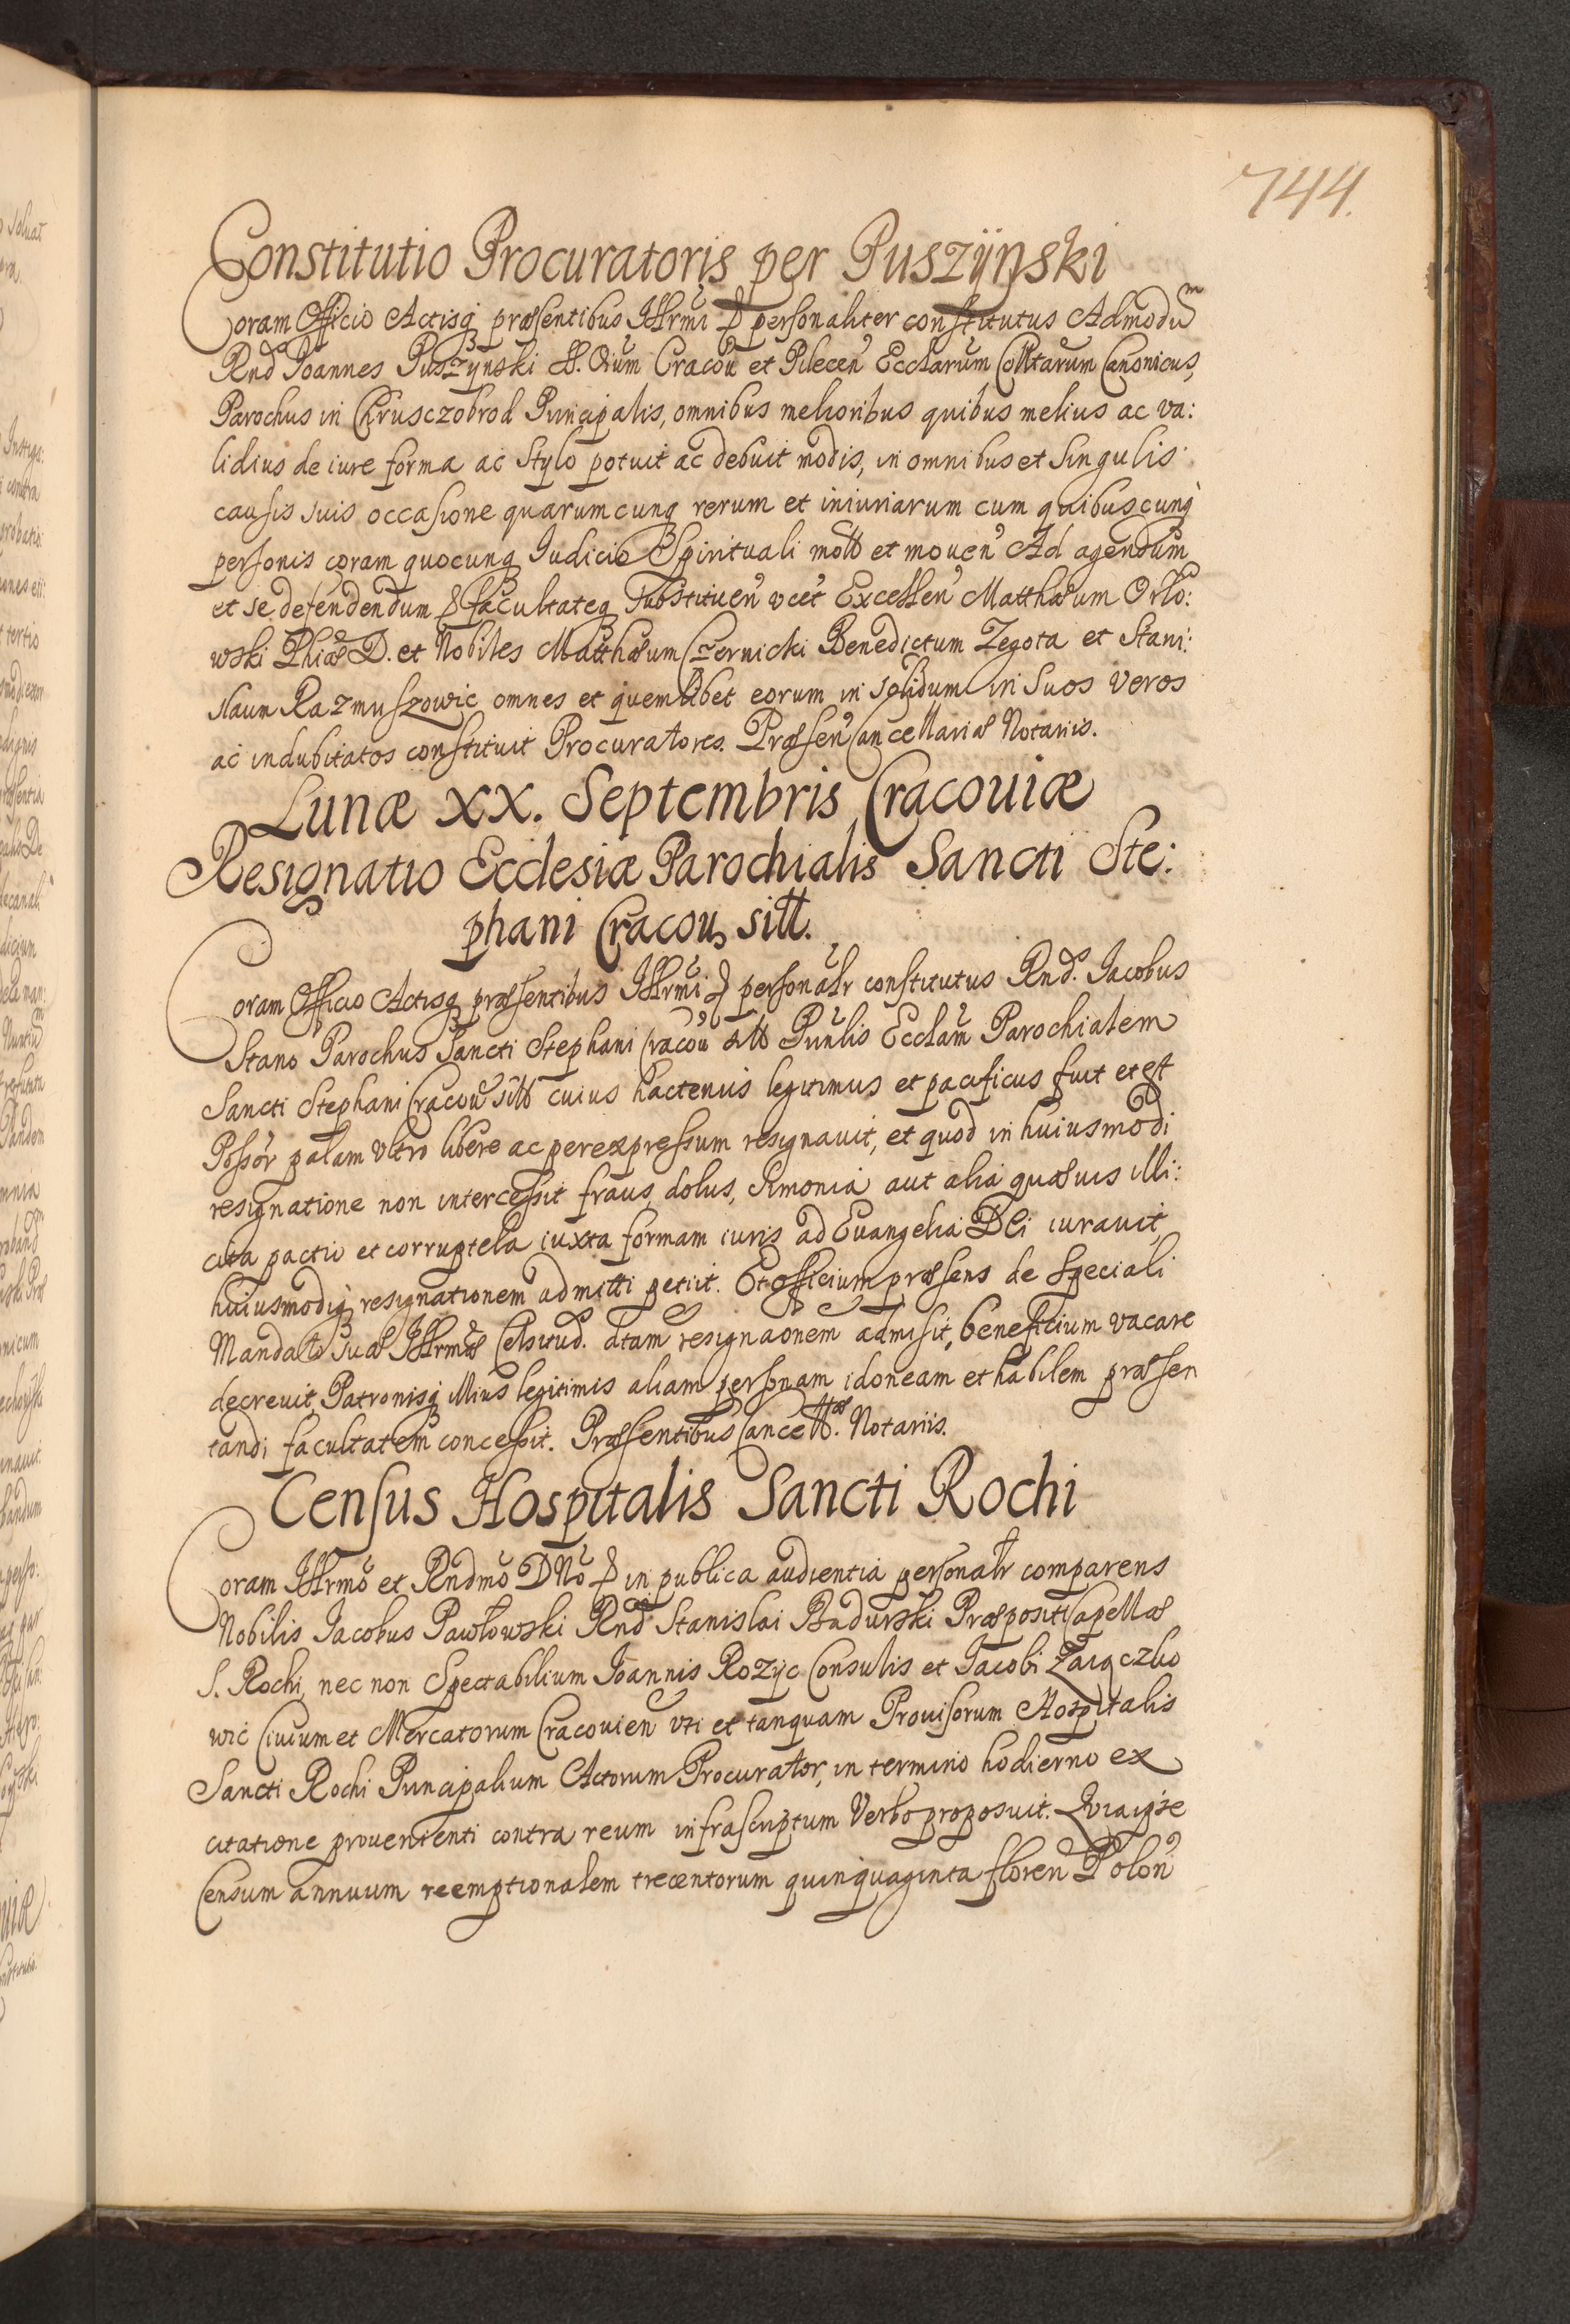 744.
Constitutio Procuratoris per Puszÿnski
Coram Officio Actisq praesentibus Illrmi personaliter constitutus Admodu
Rnd Joannes Puszynski SS. Oium Cracou et Pilecen Ecclarum Colltarum Canonicus,
Parochus in Chrusczobrod Principalis, omnibus melioribus quibus melius ac va:
lidius de iure forma ac Stylo potuit ac debuit modis, in omnibus et Singulis
causis suis occasione quarumcunq rerum et iniuriarum cum quibuscunq
personis coram quocunq Iudicio Spirituali mott et mouen Ad agendum
et se defendendum facultateq substituen vcet Excellen Matthaeum Orło:
wski Phiae D. et Nobiles Matthaeum Czernicki Benedictum Zegota et Stani:
slaum Razmuszowic omnes et quemlibet eorum in solidum in Suos veros
ac indubitatos constituit Procuratores. Praesen Cancellariae Notariis.
Lunæ XX. Septembris Cracouiæ
Resignatio Ecclesiæ Parochialis Sancti Ste:
phani Cracou sitt.
Coram Officio Actisq praesentibus Illrmi personalr constitutus Rnd. Iacobus
Stano Parochus Sancti Stephani Cracou sitt Punlis Ecclam Parochialem
Sancti Stephani Cracou sitt cuius hactenus legitimus et pacificus fuit et est
Possor palam vltro libere ac per expressum resignauit, et quod in huiusmodi
resignatione non intercessit fraus, dolus, Simonia aut alia quaeuis illi:
cita pactio et corruptela iuxta formam iuris ad Euangelia DEi iurauit,
huiusmodiq resignationem admitti petiit. Et officium praesens de Speciali
Mandato suae Illrmae Celsitud. dtam resignaonem admisit, beneficium vacare
decreuit, Patronisq illius legitimis aliam personam idoneam et habilem praesen
tandi facultatem concessit. Praesentibus Cancellae. Notariis.
Census Hospitalis Sancti Rochi
Coram Illrmo et Rndmo DNo in publica audientia personalr comparens
Nobilis Iacobus Pawłowski Rndi Stanislai Badurski Praepositi Capellae
S. Rochi, nec non Spectabilium Ioannis Rozyc Consulis et Iacobi Zaiączko
wic Ciuium et Mercatorum Cracouien vti et tanquam Prouisorum Hospitalis
Sancti Rochi Principalium Actorum Procurator, in termino hodierno ex
citatione prouenienti contra reum infrascriptum Verbo proposuit. Quia ipse
Censum annuum reemptionalem trecentorum quinquaginta floren Polon